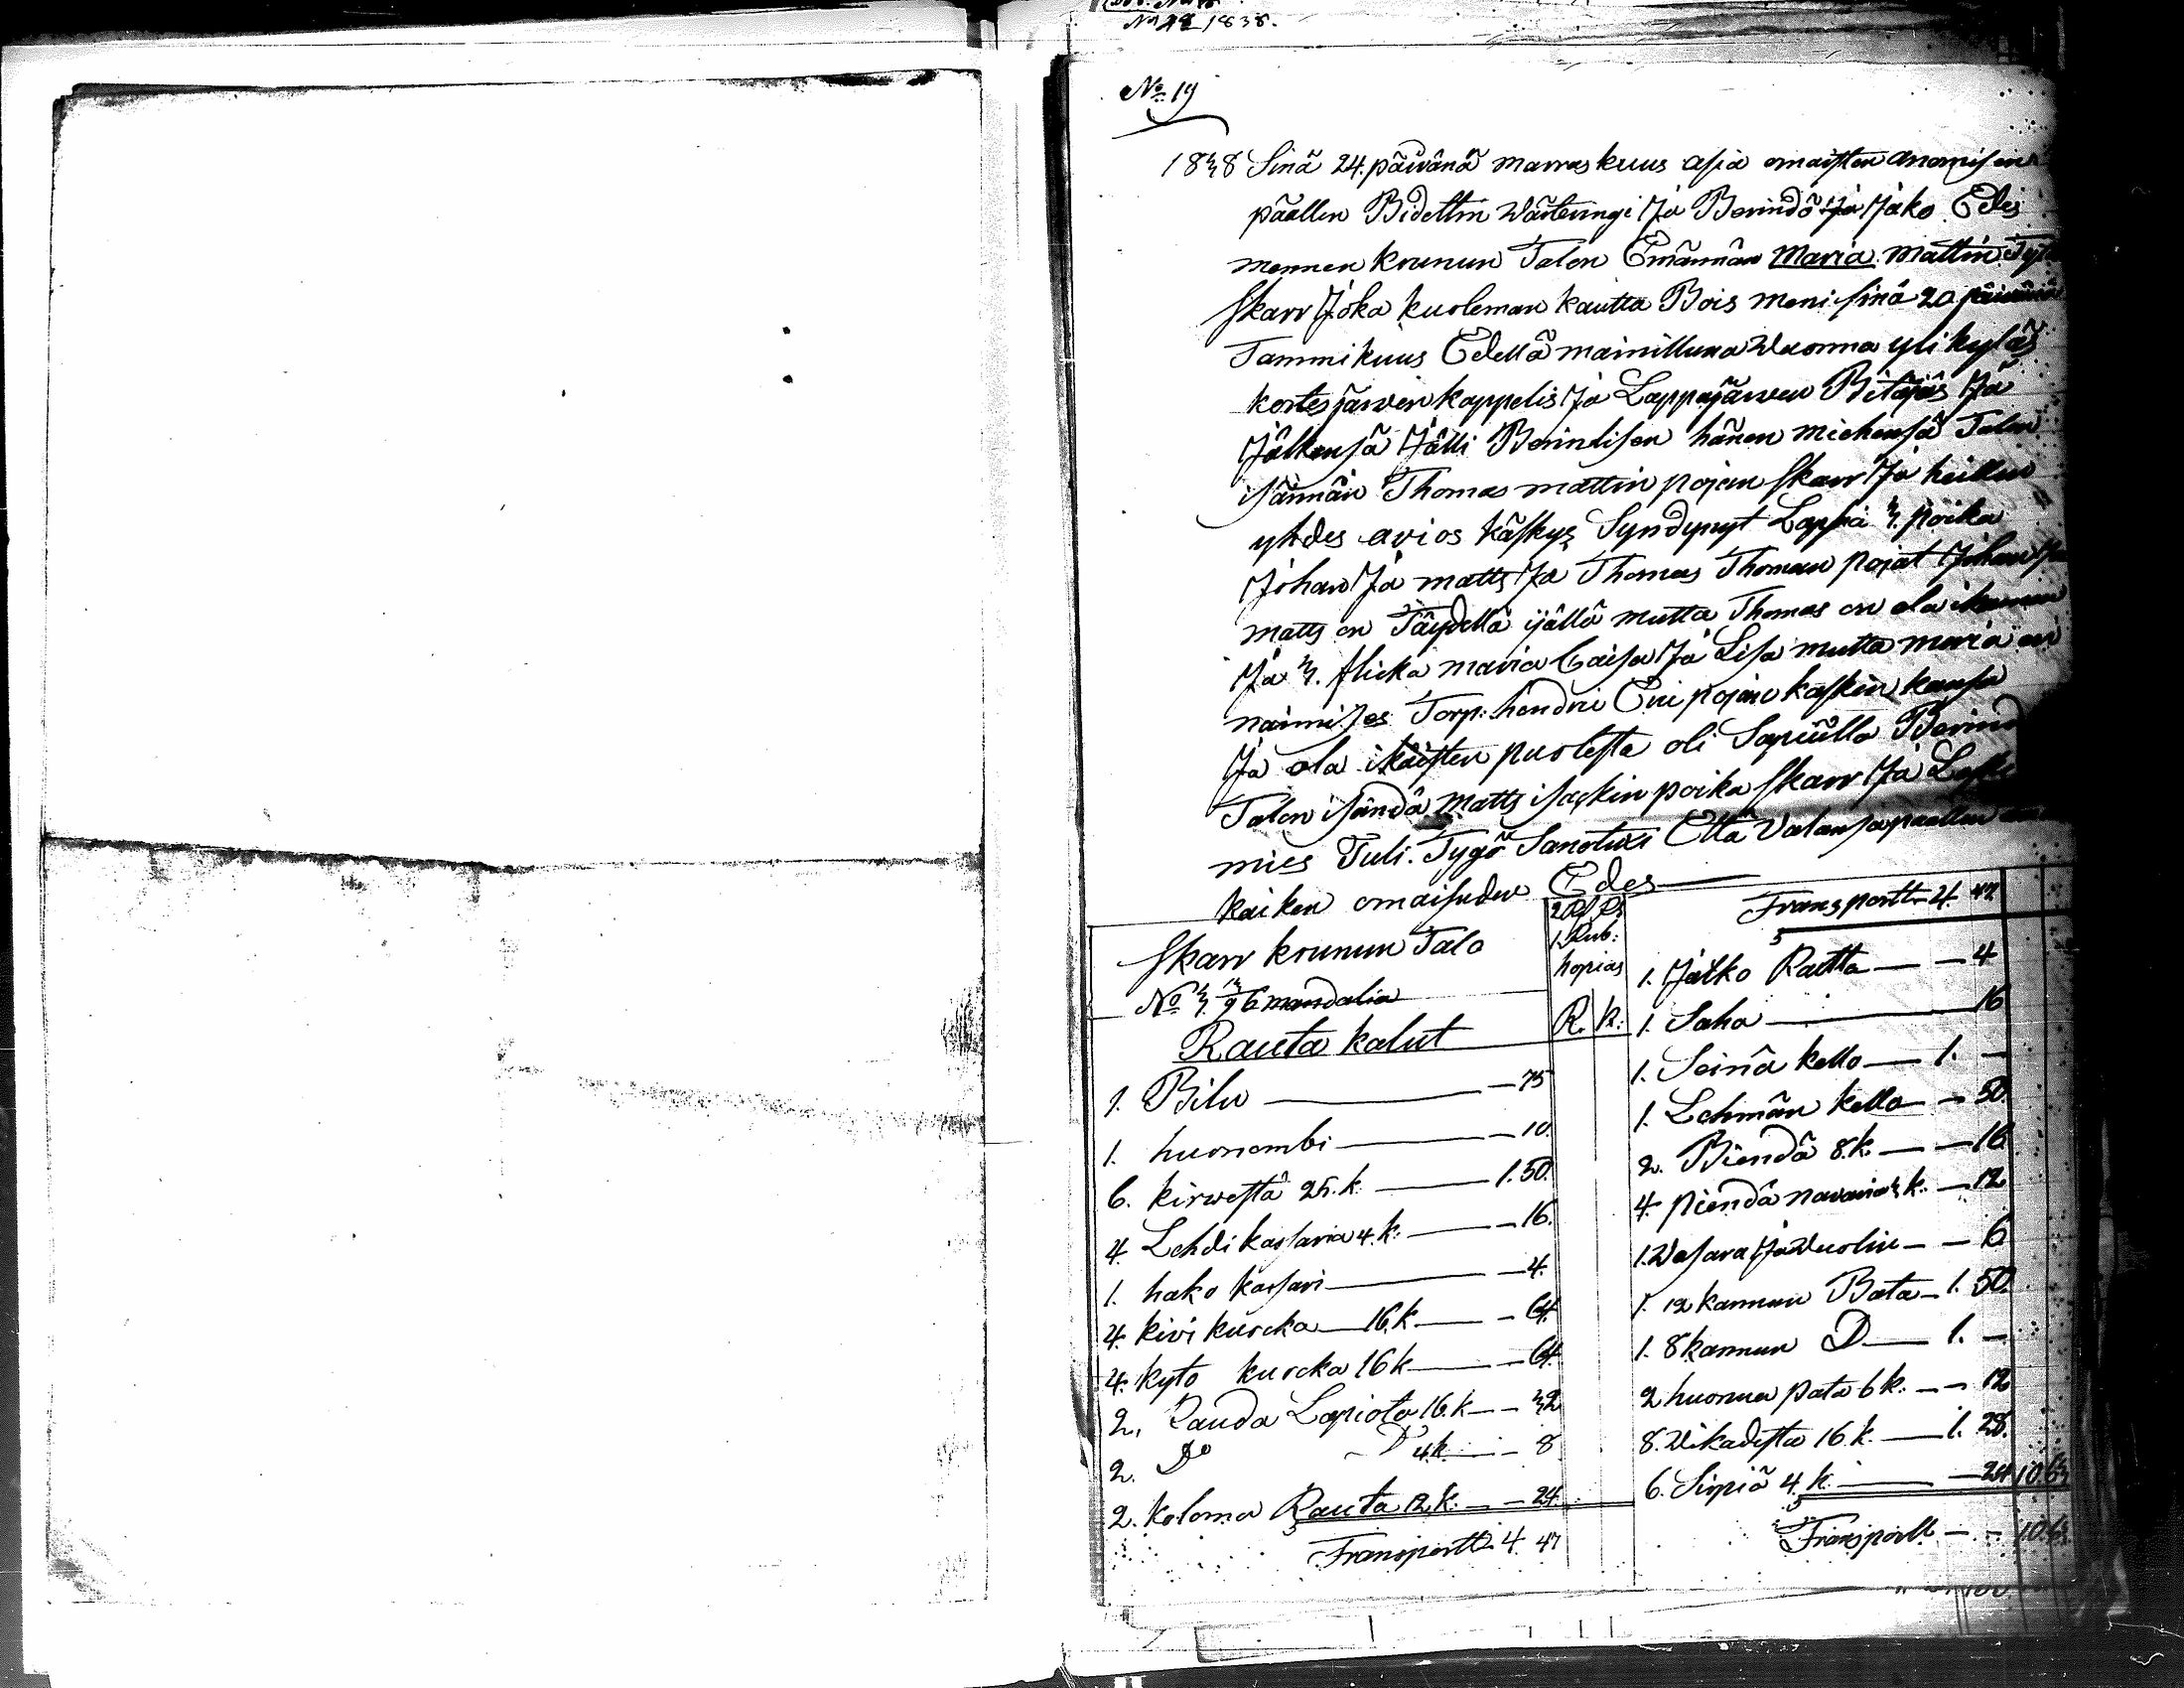 No 28 1838.
No 19
1838 Sinä 24. päivänä marraskuus asia omaisten anomisen
päällen Bidettin Värteringi Ja Berindö Ja Jako Edes
mennen krunun Talon Emännän Maria Mattin Tytär
Skarr Joka kuoleman kautta Bois meni Sinä 20 päivänä
Tammikuus Edellä mainittuna Wuonna ylikyläs
kortesjärven kappelis Ja Lappajärven Bitäjäs Ja
Jälkensä Jätti Berindisen hänen miehensä Talon
isännän Thomas mattin pojan Skarr Ja heillen
yhdes avios käskys Syndynyt Lapsia 3. poika
Johan Ja matts Ja Thomas Thomaan pojat Johan Ja
matts on Täydellä ijällä mutta Thomas on ala ikäinen
Ja 3. flicka maria Caisa Ja Lisa mutta maria on
naimises Torp: hendri Eri pojan kaskin kansa
Ja ala ikäisten puolesta oli Sapuilla
Talon isändä Matts isackin poika Skarr Ja
mies Tuli Tygö Sanotuxi Että Valansa päällen
kaiken omaisuden Edes
Skarr krunun Talo
No 3. mandalia
1 Rub:
hopias
R. k:
Rauta kalut
1. Bilu — 75
1. huonombi — 10.
6. kirwestä 25. k — 1. 50.
4. Lehdi kassaria 4. k. — 16.
1. hako kassari — 4.
4. kivi kuocka 16. k — 64.
4. kyto kuocka 16 k — 64.
2. Rauda Lapiota 16. k — 32
2. Do Do 4. k. — 8
2. koloma Rauta 12. k. — 24.
Transportt 4. 47
Transportt 4. 47
1. Jätko Rautta — 4
1. Saha — 16
1. Seinä kello — 1. —
1. Lehmän kello — 50.
2. Biendä 8. k. — 16
4. piendä navaria 3 k. — 12
1. Wasara Ja Wuolin — 6
1. 12 kannun Bata — 1. 50.
1. 8 kannun D — 1. —
2 huonua pata 6 k. — 12
8. Wikadesta 16 k. — 1. 28.
6. Sirpiä 4. k. — 24 10.63
Transportt — 10.63